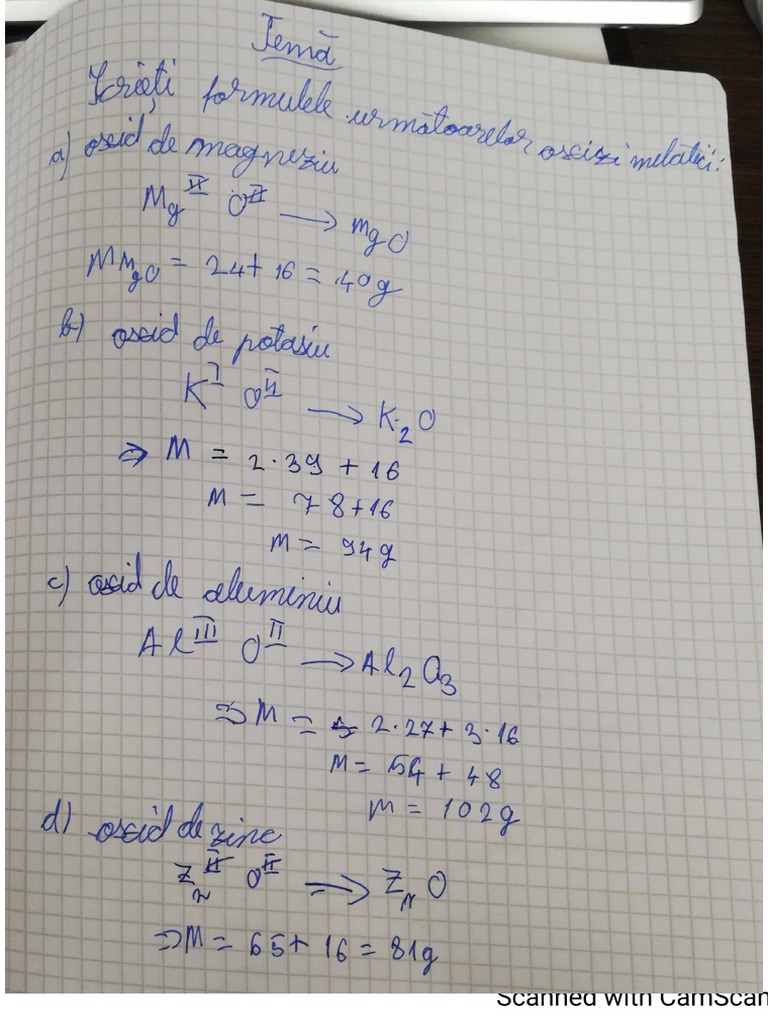 Temă
Scrieți formulele următoarelor oxizi metalici:
a) oxid de magneziu
Mg^II O^II → MgO
M MgO = 24 + 16 = 40g
b) oxid de potasiu
K^I O^II → K2O
⇒ M = 2·39 + 16
M = 78+16
M = 94g
c) oxid de aluminiu
Al^III O^II → Al2O3
⇒ M = 2·27 + 3·16
M = 54 + 48
M = 102g
d) oxid de zinc
Zn^II O^II ⇒ ZnO
⇒ M = 65 + 16 = 81g
Scanned with CamScan